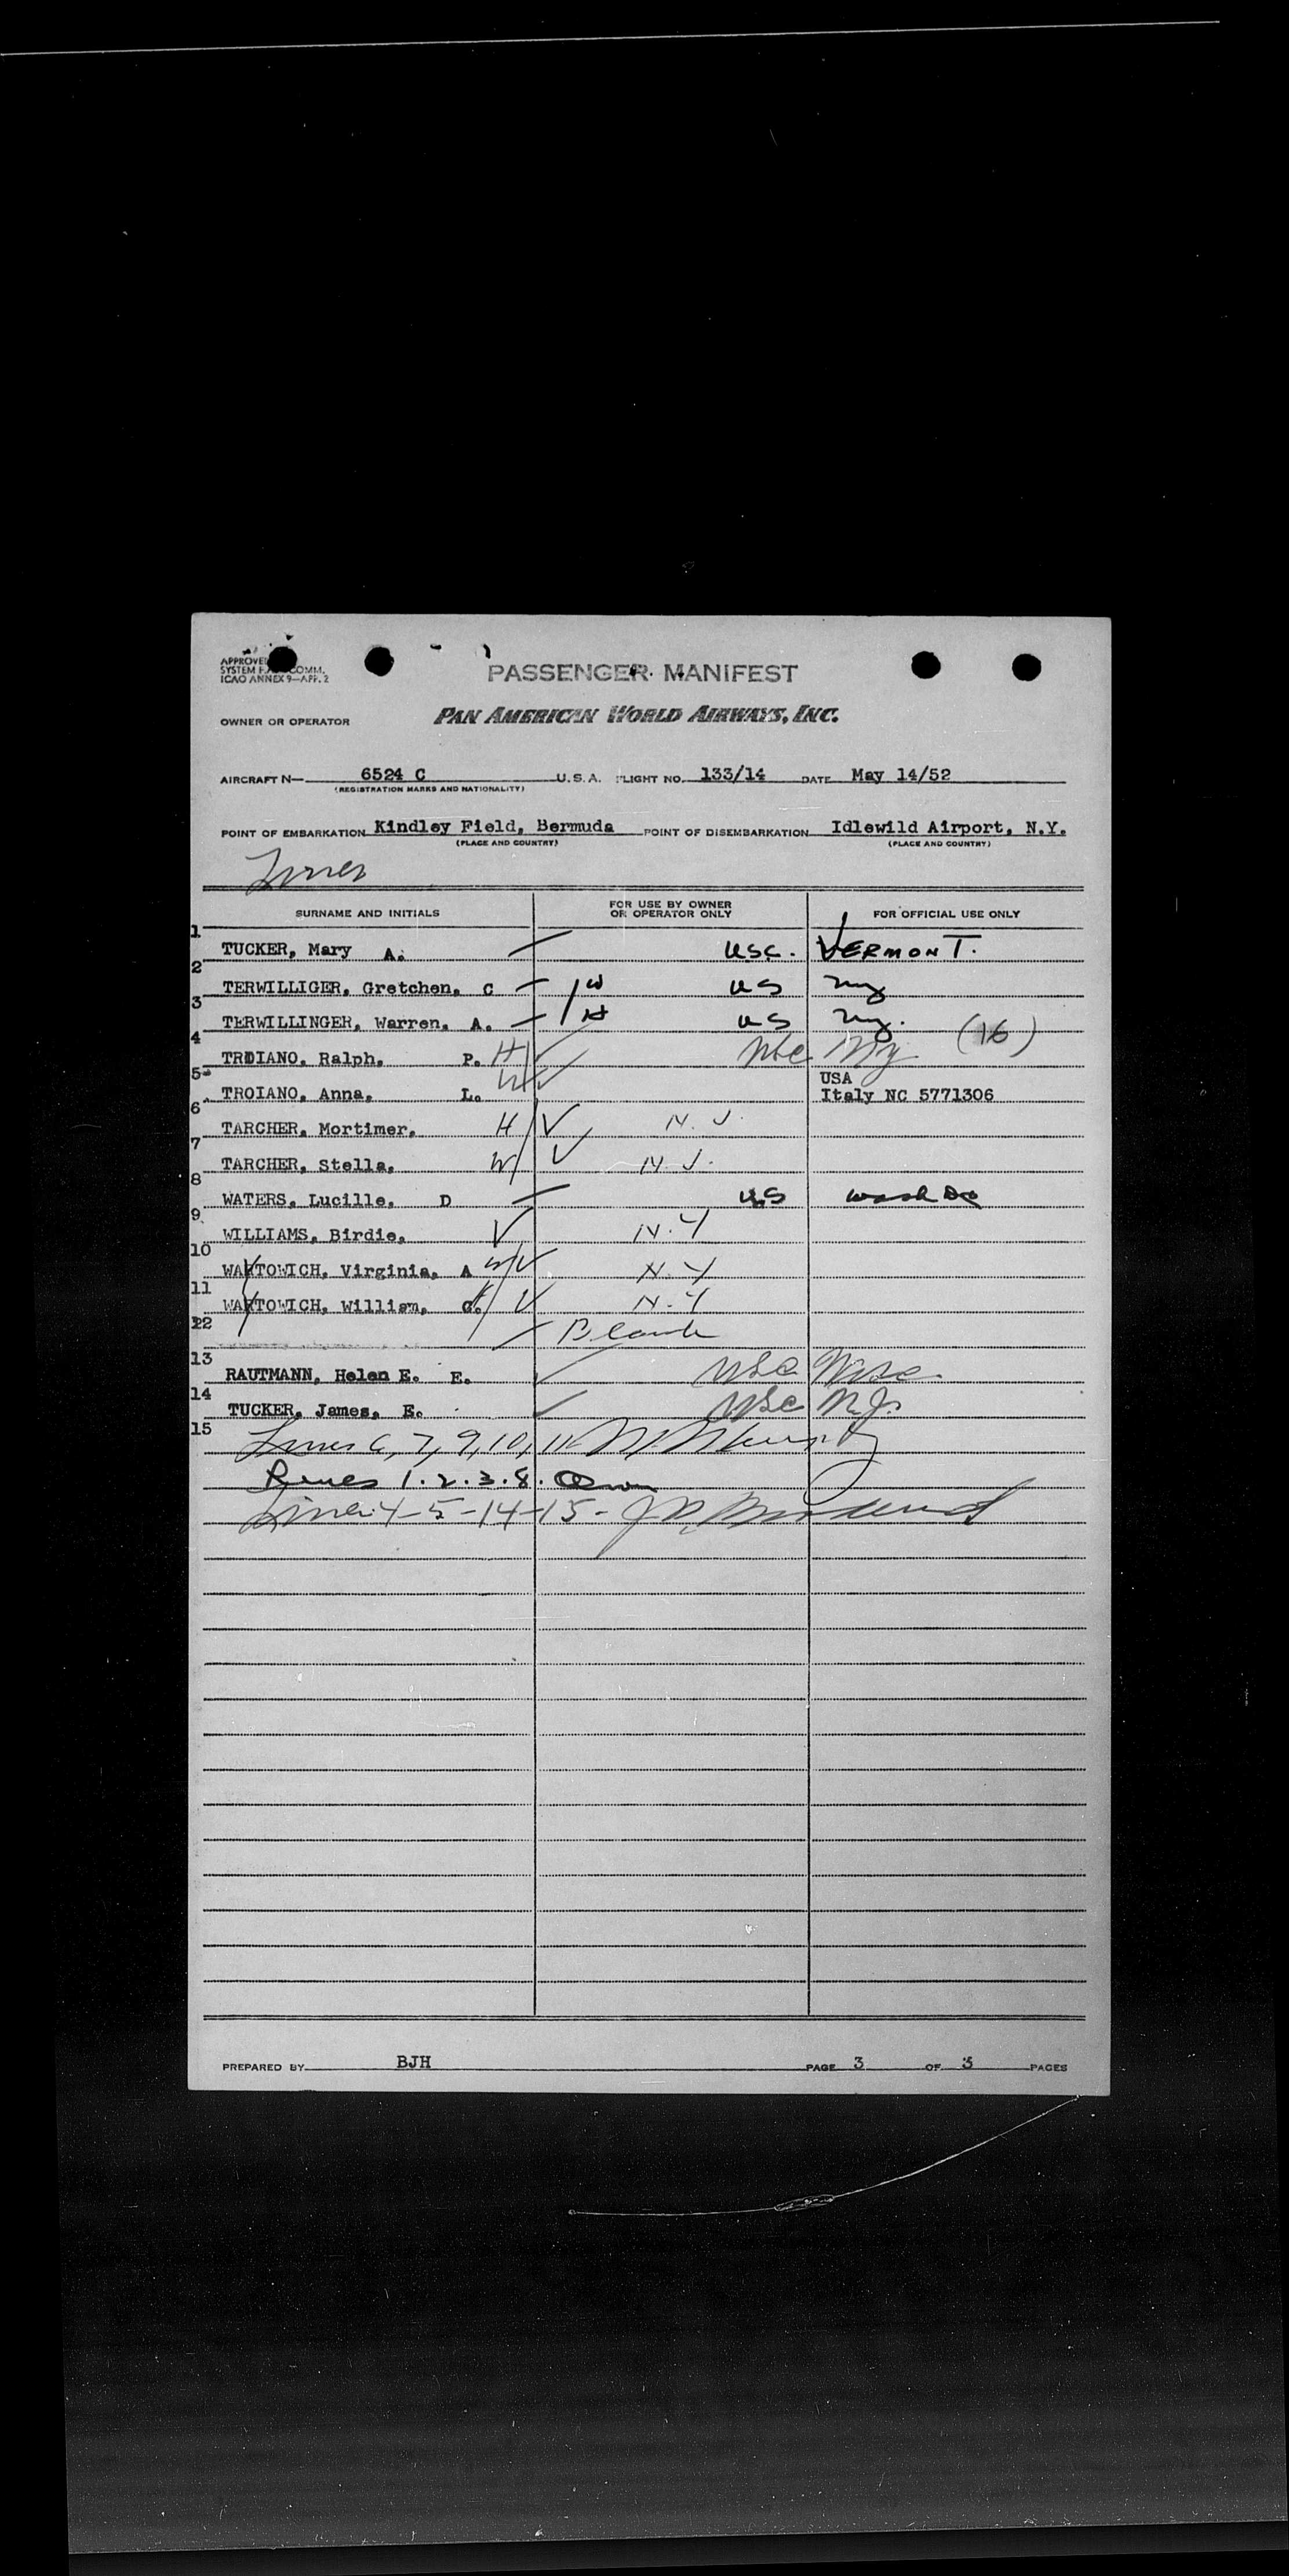 APPROVED
SYSTEM COMM.
ICAO ANNEX 9—APP. 2
PASSENGER MANIFEST
OWNER OR OPERATOR PAN AMERICAN WORLD AIRWAYS, INC.
AIRCRAFT N— 6524 C U.S.A. FLIGHT NO. 133/14 DATE May 14/52
(REGISTRATION MARKS AND NATIONALITY)
POINT OF EMBARKATION Kindley Field, Bermuda POINT OF DISEMBARKATION Idlewild Airport, N.Y.
(PLACE AND COUNTRY) (PLACE AND COUNTRY)
SURNAME AND INITIALS FOR USE BY OWNER OR OPERATOR ONLY FOR OFFICIAL USE ONLY
1 TUCKER, Mary A. USC. VERMONT.
2 TERWILLIGER, Gretchen, C W US NY
3 TERWILLINGER, Warren, A. H US NY. (16)
4 TROIANO, Ralph, P. H USC NY
5 TROIANO, Anna, L. W USA Italy NC 5771306
6 TARCHER, Mortimer, H N.J.
7 TARCHER, Stella, W N.J.
8 WATERS, Lucille, D US Wash DC
9 WILLIAMS, Birdie, N.Y
10 WARTOWICH, Virginia, A W N.Y
11 WARTOWICH, William, G. H N.Y
12 Blank
13 RAUTMANN, Helen E. E. USC Wisc
14 TUCKER, James, E. USC N.J.
15 Lines 6, 7, 9, 10, 11
Lines 1. 2. 3. 8.
Lines 4-5-14-15-
PREPARED BY BJH PAGE 3 OF 3 PAGES